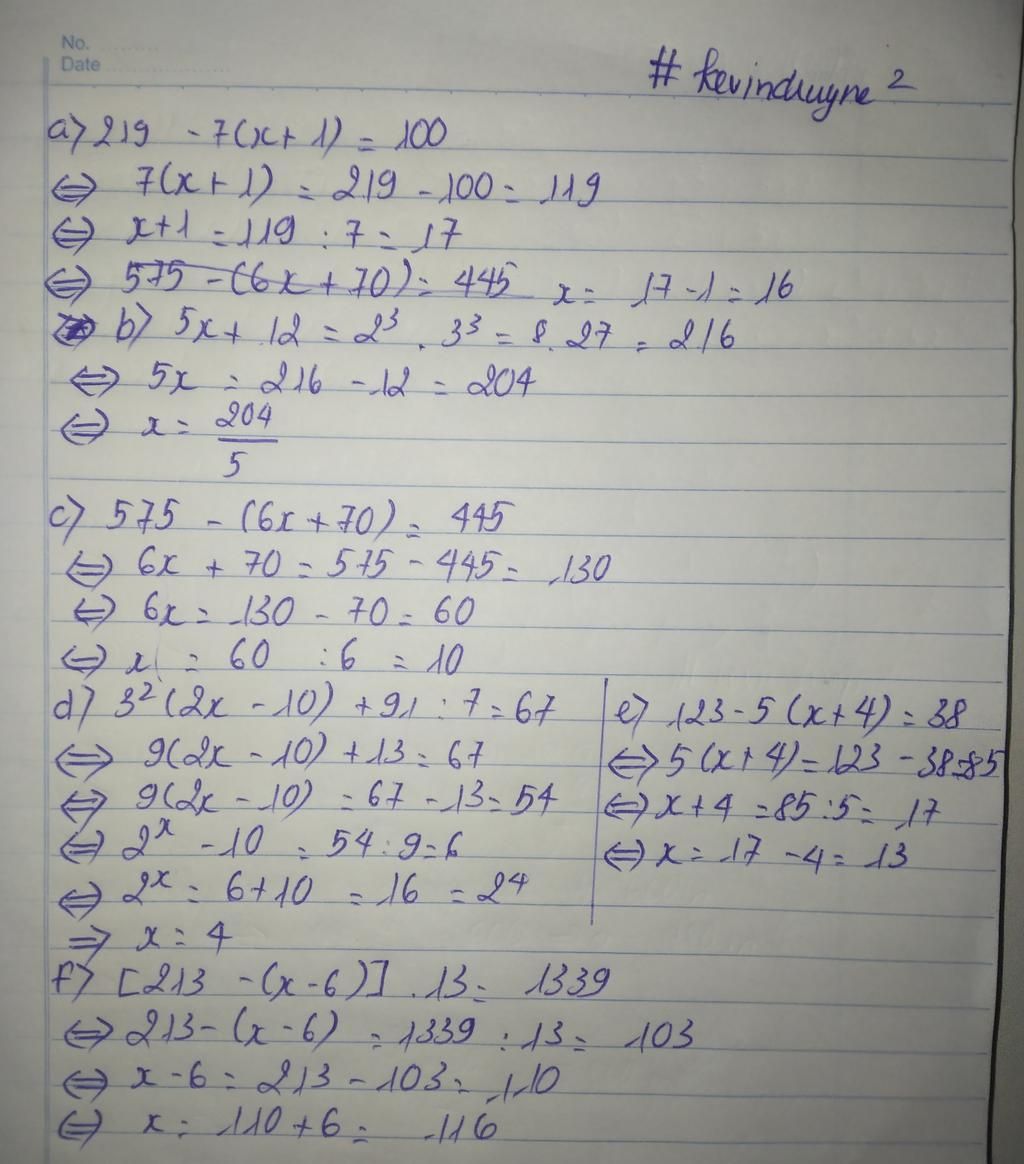 No. ..........
Date ....................
# kevindruyne²
a) 219 - 7(x + 1) = 100
⇔ 7(x + 1) = 219 - 100 = 119
⇔ x+1 = 119 : 7 = 17
⇔ 575 - (6x + 70) = 445 x = 17 - 1 = 16
b) 5x + 12 = 2³ . 3³ = 8. 27 = 216
⇔ 5x = 216 - 12 = 204
⇔ x = 204/5
c) 575 - (6x + 70) = 445
⇔ 6x + 70 = 575 - 445 = 130
⇔ 6x = 130 - 70 = 60
⇔ x = 60 : 6 = 10
d) 3² (2x - 10) + 91 : 7 = 67
⇔ 9(2x - 10) + 13 = 67
⇔ 9(2x - 10) = 67 - 13 = 54
⇔ 2ˣ - 10 = 54 : 9 = 6
⇔ 2ˣ = 6 + 10 = 16 = 2⁴
⇒ x = 4
e) 123 - 5 (x + 4) = 38
⇔ 5 (x + 4) = 123 - 38 = 85
⇔ x + 4 = 85 : 5 = 17
⇔ x = 17 - 4 = 13
f) [213 - (x - 6)] . 13 = 1339
⇔ 213 - (x - 6) = 1339 : 13 = 103
⇔ x - 6 = 213 - 103 = 110
⇔ x = 110 + 6 = 116